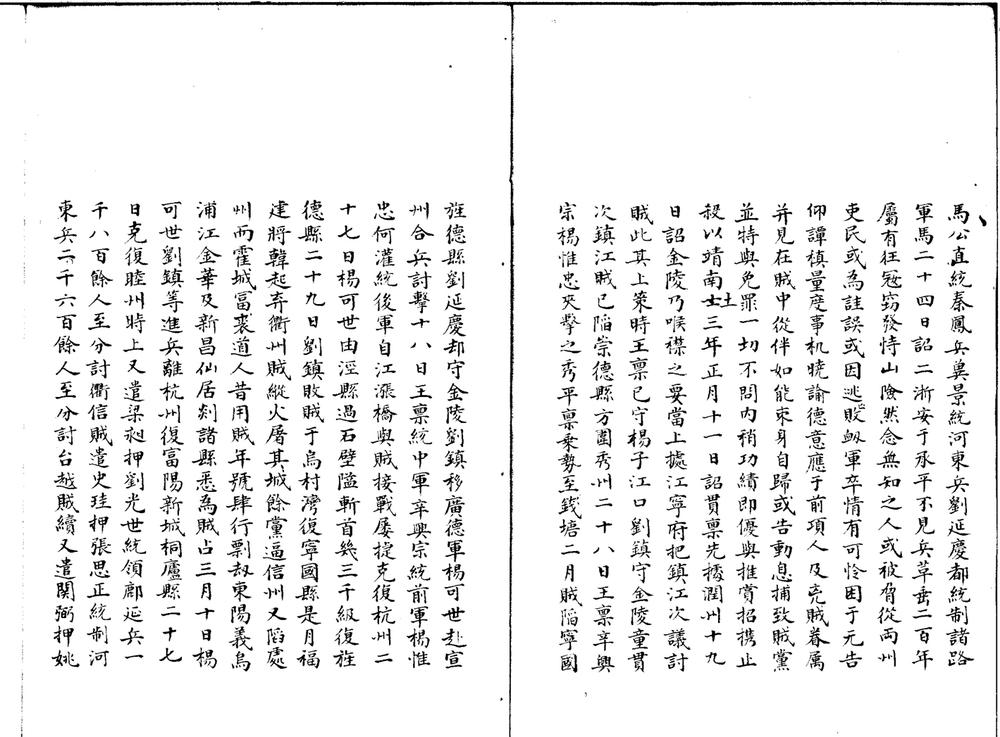 馬公直統秦鳳兵冀景統河東兵劉延慶都統制諸路
軍馬二十四日詔二浙安于承平不見兵革垂二百年
屬有狂冦窃發恃山險然念無知之人或被脅從両州
吏民或為詿誤或因逃敗衂軍卒情有可怜困于元告
仰譚稹量度事机暁諭德意應于前項人及売賊眷属
并見在賊中從伴如能束身自歸或告動息捕致賊黨
並特與免罪一切不問内稍功績即優與推賞招携止
殺以靖南士土三年正月十一日詔貫稟先據潤州十九
日詔金陵乃喉襟之要當上據江寧府把鎮江次議討
賊此其上策時王稟已守楊子江口劉鎮守金陵童貫
次鎮江賊已陷崇德縣方圍秀州二十八日王稟辛興
宗楊惟忠夾擊之秀平稟乗勢至錢塘二月賊陷寧國
旌德縣劉延慶却守金陵劉鎮移廣德軍楊可世赴宣
州合兵討擊十八日王稟統中軍辛興宗統前軍楊惟
忠何灌統後軍自江漲橋與賊接戰屡捷克復杭州二
十七日楊可世由涇縣過石壁隘斬首幾三千級復旌
德縣二十九日劉鎮敗賊于烏村灣復寧國縣是月福
建将韓起弃衢州賊縱火屠其城餘黨逼信州又陷處
州而霍城富裘道人昔用賊年號肆行剽刼東陽義烏
浦江金華及新昌仙居剡諸縣悉為賊占三月十日楊
可世劉鎮等進兵離杭州復富陽新城桐廬縣二十七
日克復睦州時上又遣梁昶押劉光世統領鄜延兵一
千八百餘人至分討衢信賊遣史珪押張思正統制河
東兵二千六百餘人至分討台越賊續又遣関弼押姚